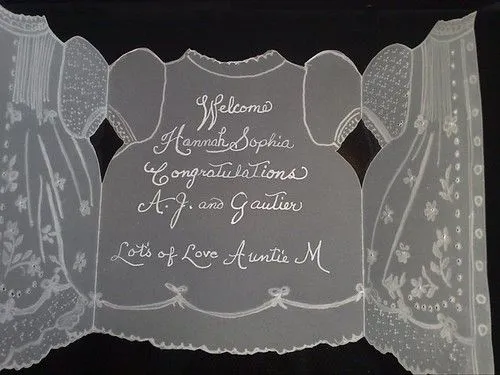 Welcome
Hannah Sophia
Congratulations
A.J. and Gautier
Lots of Love Auntie M